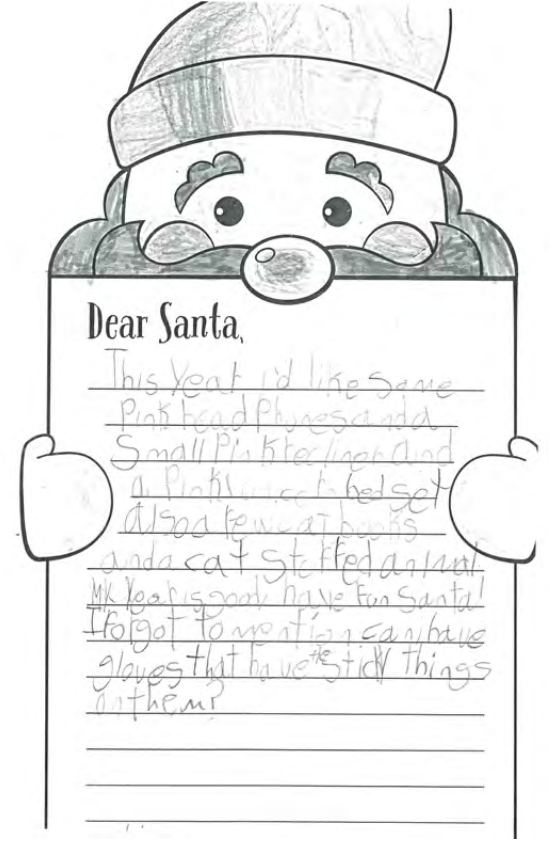 Dear Santa,
This Year i'd like some
Pink headPhones and a
Small Pink recliner and
a Pink bed set
also a few cat books
and a cat stuffed animal
year is good have fun Santa!
I forgot to mention can i have
gloves that have the sticky things
on them?